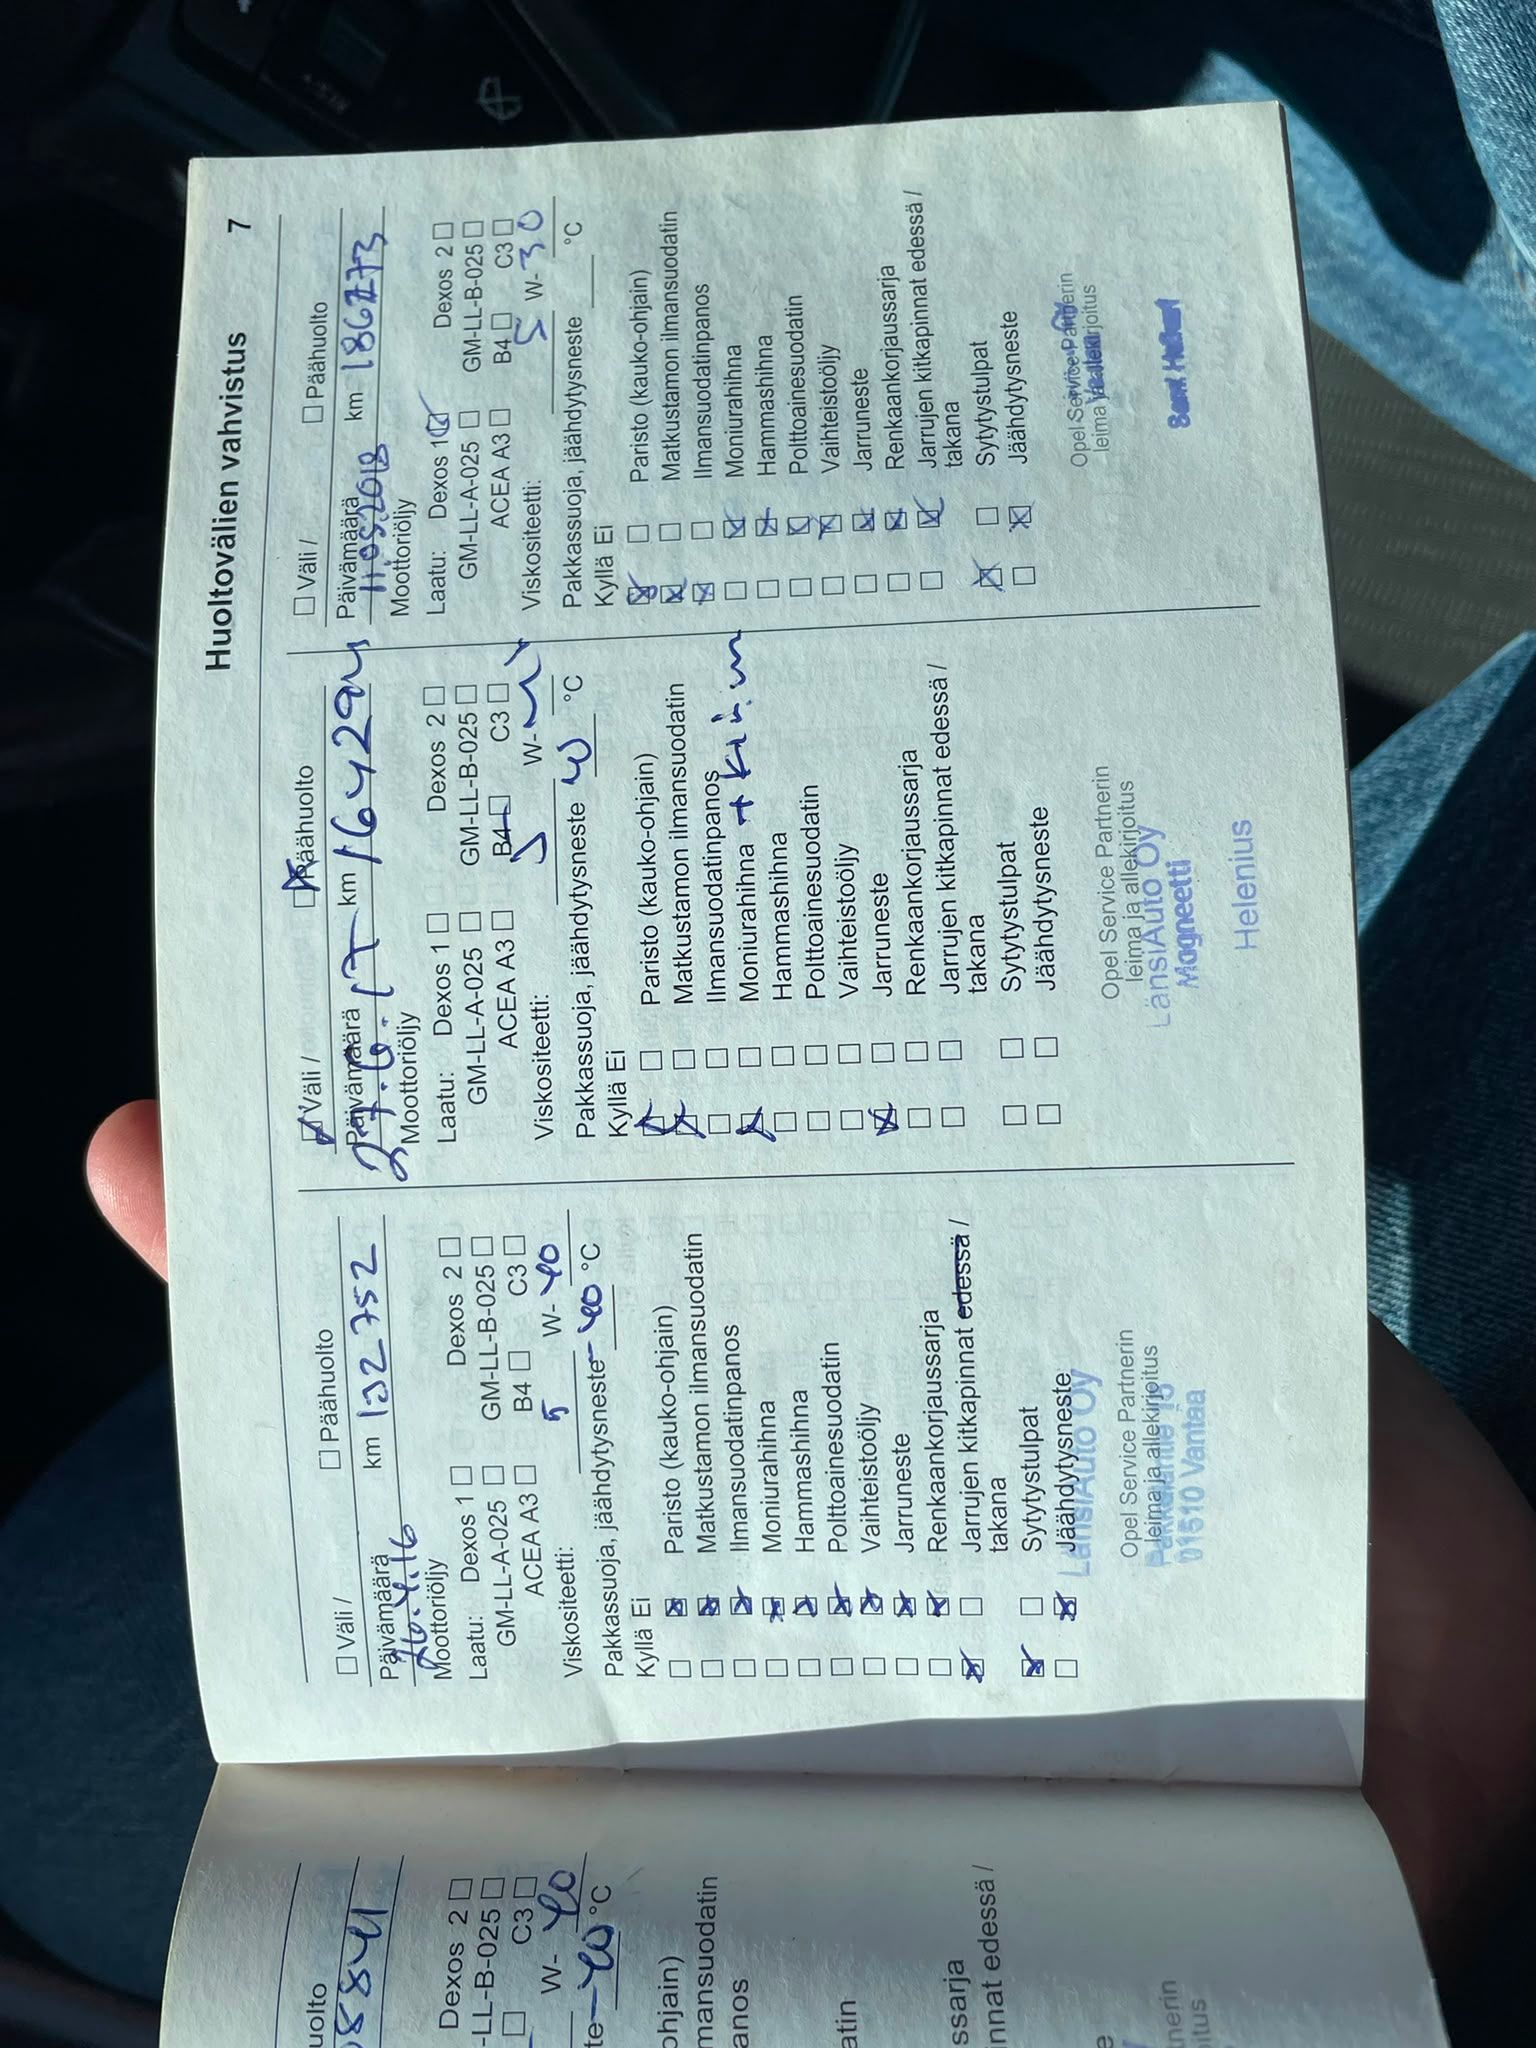 uolto
8841
Dexos 2
-LL-B-025
C3
W- 40
te -40 °C
ohjain)
mansuodatin
anos
atin
ssarja
innat edessä /
e
tnerin
oitus
Huoltovälien vahvistus 7
Väli / Päähuolto
Päivämäärä km 132752
26.4.16
Moottoriöljy
Laatu: Dexos 1 Dexos 2
GM-LL-A-025 GM-LL-B-025
ACEA A3 B4 C3
Viskositeetti: 5 W- 40
Pakkassuoja, jäähdytysneste -40 °C
Kyllä Ei
Paristo (kauko-ohjain)
Matkustamon ilmansuodatin
Ilmansuodatinpanos
Moniurahihna
Hammashihna
Polttoainesuodatin
Vaihteistoöljy
Jarruneste
Renkaankorjaussarja
Jarrujen kitkapinnat edessä /
takana
Sytytystulpat
Jäähdytysneste
LänsiAuto Oy
Opel Service Partnerin
leima ja allekirjoitus
01510 Vantaa
Väli / Päähuolto
Päivämäärä km 164294
27.6.17
Moottoriöljy
Laatu: Dexos 1 Dexos 2
GM-LL-A-025 GM-LL-B-025
ACEA A3 B4 C3
Viskositeetti: 5 W-
Pakkassuoja, jäähdytysneste 40 °C
Kyllä Ei
Paristo (kauko-ohjain)
Matkustamon ilmansuodatin
Ilmansuodatinpanos
Moniurahihna
Hammashihna
Polttoainesuodatin
Vaihteistoöljy
Jarruneste
Renkaankorjaussarja
Jarrujen kitkapinnat edessä /
takana
Sytytystulpat
Jäähdytysneste
Opel Service Partnerin
leima ja allekirjoitus
LänsiAuto Oy
Magneetti
Helenius
Väli / Päähuolto
Päivämäärä km 186273
11.05.2018
Moottoriöljy
Laatu: Dexos 1 Dexos 2
GM-LL-A-025 GM-LL-B-025
ACEA A3 B4 C3
Viskositeetti: 5 W- 30
Pakkassuoja, jäähdytysneste °C
Kyllä Ei
Paristo (kauko-ohjain)
Matkustamon ilmansuodatin
Ilmansuodatinpanos
Moniurahihna
Hammashihna
Polttoainesuodatin
Vaihteistoöljy
Jarruneste
Renkaankorjaussarja
Jarrujen kitkapinnat edessä /
takana
Sytytystulpat
Jäähdytysneste
Opel Service Partnerin
leima ja allekirjoitus